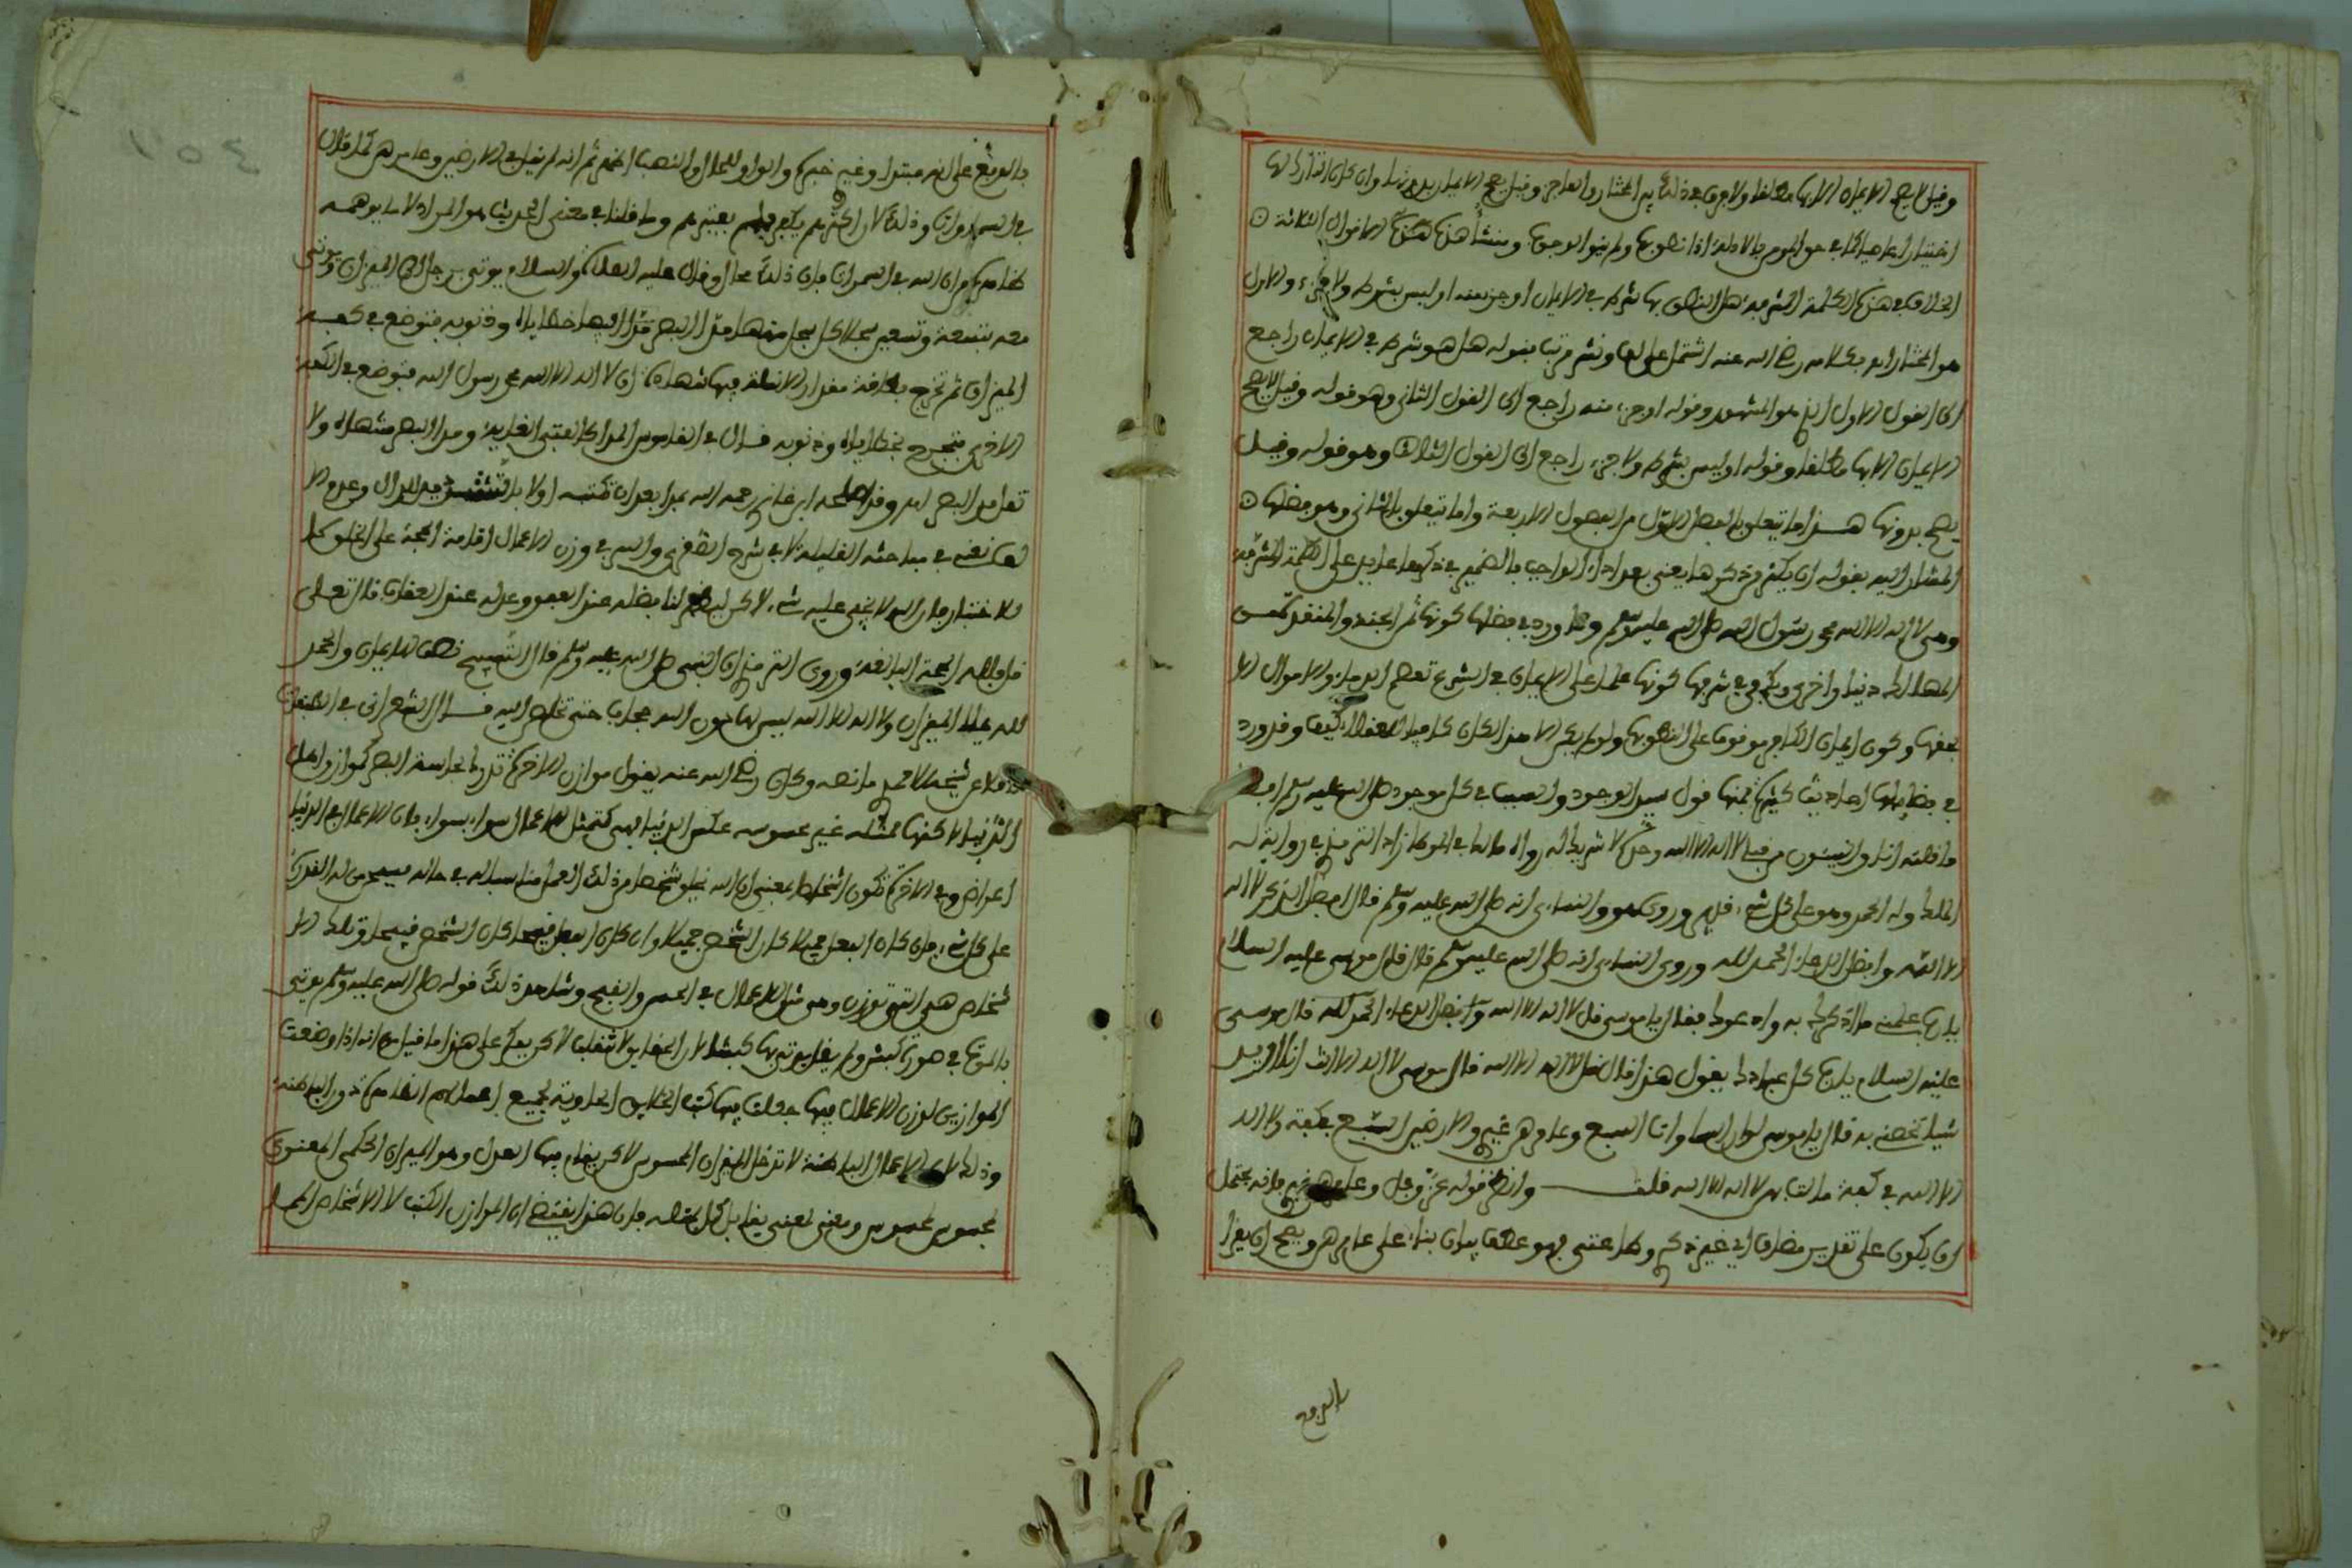 وقيل لا يصح الايمان الا بها مطلقا ولا فرق في ذلك بين المختار والعاجز وقيل يصح الايمان بدونها وان كان التارك لها
اختيارا عاصيا كما في حق المومن بالاصالة اذا نطق بها ولم ينو الوجوب ومنشأ هذه الاقوال الثلاثة
الخلاف في هذه الكلمة المشرفة هل النطق بها شرط في الايمان او جزء منه او ليس بشرط ولا جزء والاول
هو المختار وكلامه رضي الله عنه اشتمل على لف ونشر مرتب فقوله هل هو شرط في الايمان راجع
الى القول الاول الذي هو المشهور وقوله او جزء منه راجع الى القول الثاني وهو قوله وقيل لا يصح
الايمان الا بها مطلقا وقوله او ليس بشرط ولا جزء راجع الى القول الثالث وهو قوله وقيل
يصح بدونها هذا ما يتعلق بالفصل الاول من الفصول الاربعة واما ما يتعلق بالثاني وهو فضلها
المشار اليه بقوله ان يكثر من ذكرها يعني بعد اداء الواجب فالضمير في ذكرها عايد على الكلمة المشرفة
وهي لا اله الا الله محمد رسول الله صلى الله عليه وسلم وقد ورد في فضلها كونها ثمن الجنة والمنقذ من
المهالك دنيا واخرى ويكفي في شرفها كونها علما على الايمان في الشرع تعصم الدماء والاموال الا
بحقها وكون ايمان الكافر موقوفا على النطق بها ولو لم يكن الا هذا لكان كافيا للعقلاء كيف وقد ورد
في فضايلها احاديث كثيرة فمنها قول سيد الوجود والسبب في كل موجود صلى الله عليه وسلم افضل
ما قلته انا والنبيئون من قبلي لا اله الا الله وحده لا شريك له رواه مالك في الموطا زاد الترمذي في روايته له
الملك وله الحمد وهو على كل شيء قدير وروى هو والنسايي انه صلى الله عليه وسلم قال افضل الذكر لا اله
الا الله وافضل الدعاء الحمد لله وروى النسايي انه صلى الله عليه وسلم قال قال موسى عليه السلام
يا رب علمني ما اذكرك به وادعوك به فقال يا موسى قل لا اله الا الله وافضل الدعاء الحمد لله قال موسى
عليه السلام يا رب كل عبادك يقول هذا قال قل لا اله الا الله قال موسى لا اله الا انت انما اريد
شيئا تخصني به قال يا موسى لو ان السماوات السبع وعامرهن غيري والارضين السبع في كفة ولا اله
الا الله في كفة مالت بهن لا اله الا الله قلت وانظر قوله عز وجل وعامرهن غيري فانه يحتمل
ان يكون على تقدير مضاف اي غير ذكري وطاعتي فهو عطف بيان بناء على عامرهن ويصح ان يقرأ
بالرفع
بالرفع على انه مبتدا وغيري خبره والواو للحال والنصب اظهر ثم انه لم يقل في الارضين وعامرهن كما قال
في السماوات وذلك لان اكثرهم يكفر بغيرهم وما قلنا في معنى الحديث هو المراد لا ما يوهمه
ظاهره من ان الله في السماوات فان ذلك محال وقال عليه الصلاة والسلام يوتى برجل الى الميزان ويوتى
معه بتسعة وتسعين سجلا كل سجل منها مد البصر فيها خطاياه وذنوبه فتوضع في كفة
الميزان ثم تخرج بطاقة مقدار الانملة فيها شهادة ان لا اله الا الله محمد رسول الله فتوضع في الكفة
الاخرى فترجح بخطاياه وذنوبه قال في القاموس المدى كالفتى الغاية ومد البصر منتهاه ولا
تقل مد البصر اهـ وقد لحنه ابن غازي رحمه الله بعد ان كتبه اولا بلا تشديد الدال وعدم
في مباحثه الفليلة لا في شرح الصغرى والسر في وزن الاعمال اقامة الحجة على الخلق كما
للاختبار فان الله لا يخفى عليه شيء لاكن ليظهر لنا فضله عند العفو وعدله عند العقاب قال تعالى
قل فلله الحجة البالغة وروى الترمذي ان النبي صلى الله عليه وسلم قال التسبيح نصف الايمان والحمد
لله يملأ الميزان ولا اله الا الله ليس لها دون الله حجاب حتى تخلص اليه قال الشعراني في
نقلا عن شيخه ما نصه وكان رضي الله عنه يقول موازن الاخرة تدرك بحاسة البصر كموازن اهل
الدنيا لاكنها ممثلة غير محسوسة عكس الدنيا فهي كتمثل الاعمال سواء بسواء فان الاعمال في الدنيا
اعراض وفي الاخرة تكون اشخاصا بمعنى ان الله يخلق شخصا من ذلك العمل مناسبا له في حاله فسبحان من له القدرة
على كل شيء فان كان الفعل جميلا كان الشخص جميلا وان كان الفعل قبيحا كان الشخص قبيحا وتلك الا
شخاص هي التي توزن وهي مثل الاعمال في الحسن والقبح وشاهد ذلك قوله صلى الله عليه وسلم يوتى
بالموت في صورة كبش ولم يقل يوتى بها كبشا لان الحقايق لا تنقلب لاكن يعكر على هذا ما قيل من انه اذا وضعت
الموازين لوزن الاعمال فيها جعلت فيها كتب الخلايق الحاوية لجميع اعمالهم الظاهرة دون الباطنة
وذلك لان الاعمال الباطنة لا تدخل الميزان المحسوس لاكن يقام فيها العدل وهو الميزان الحكمي المعنوي
فمحسوس لمحسوس ومعنى لمعنى يقابل كل بمثله فان هذا يقتضي ان الموازن الكتب لا الاشخاص